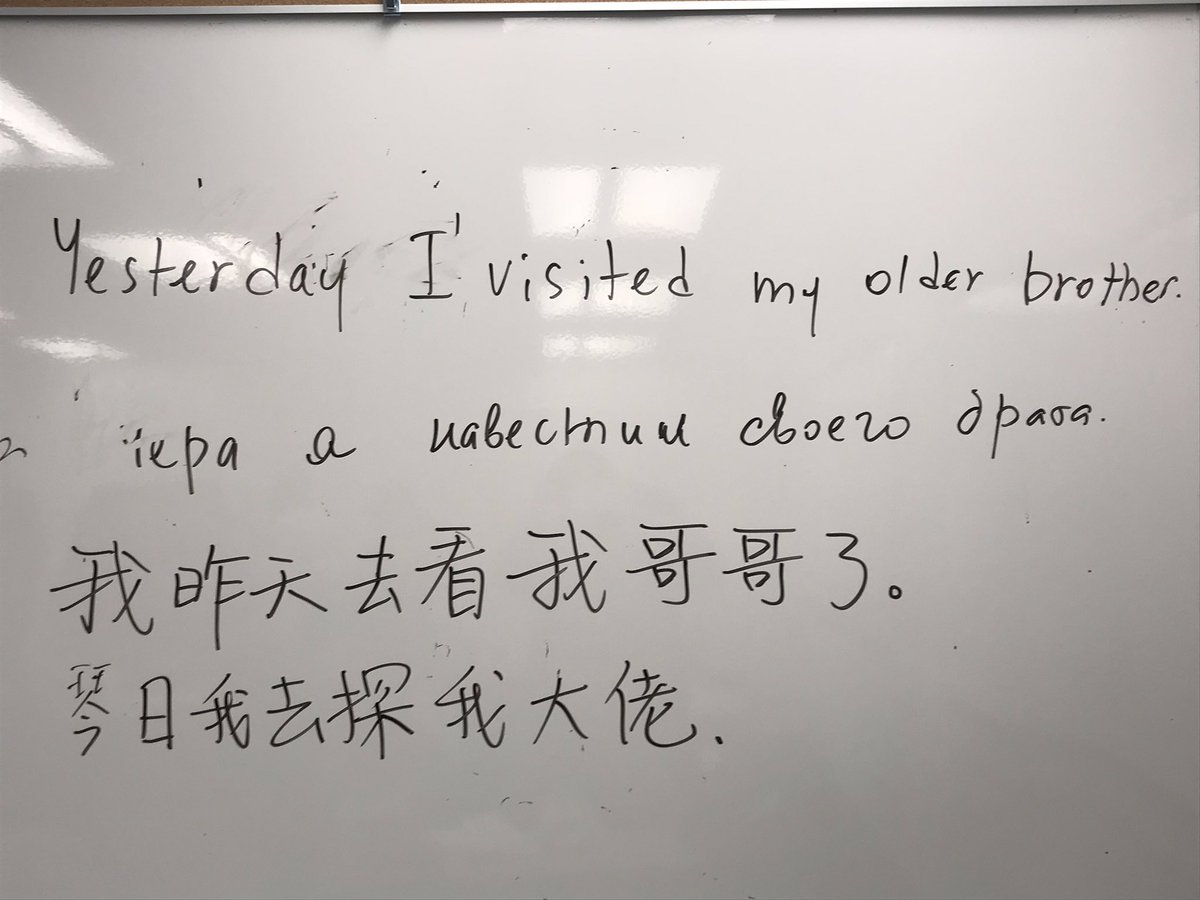 Yesterday I visited my older brother.
я навестил своего брата.
我昨天去看我哥哥了。
琴日我去探我大佬.